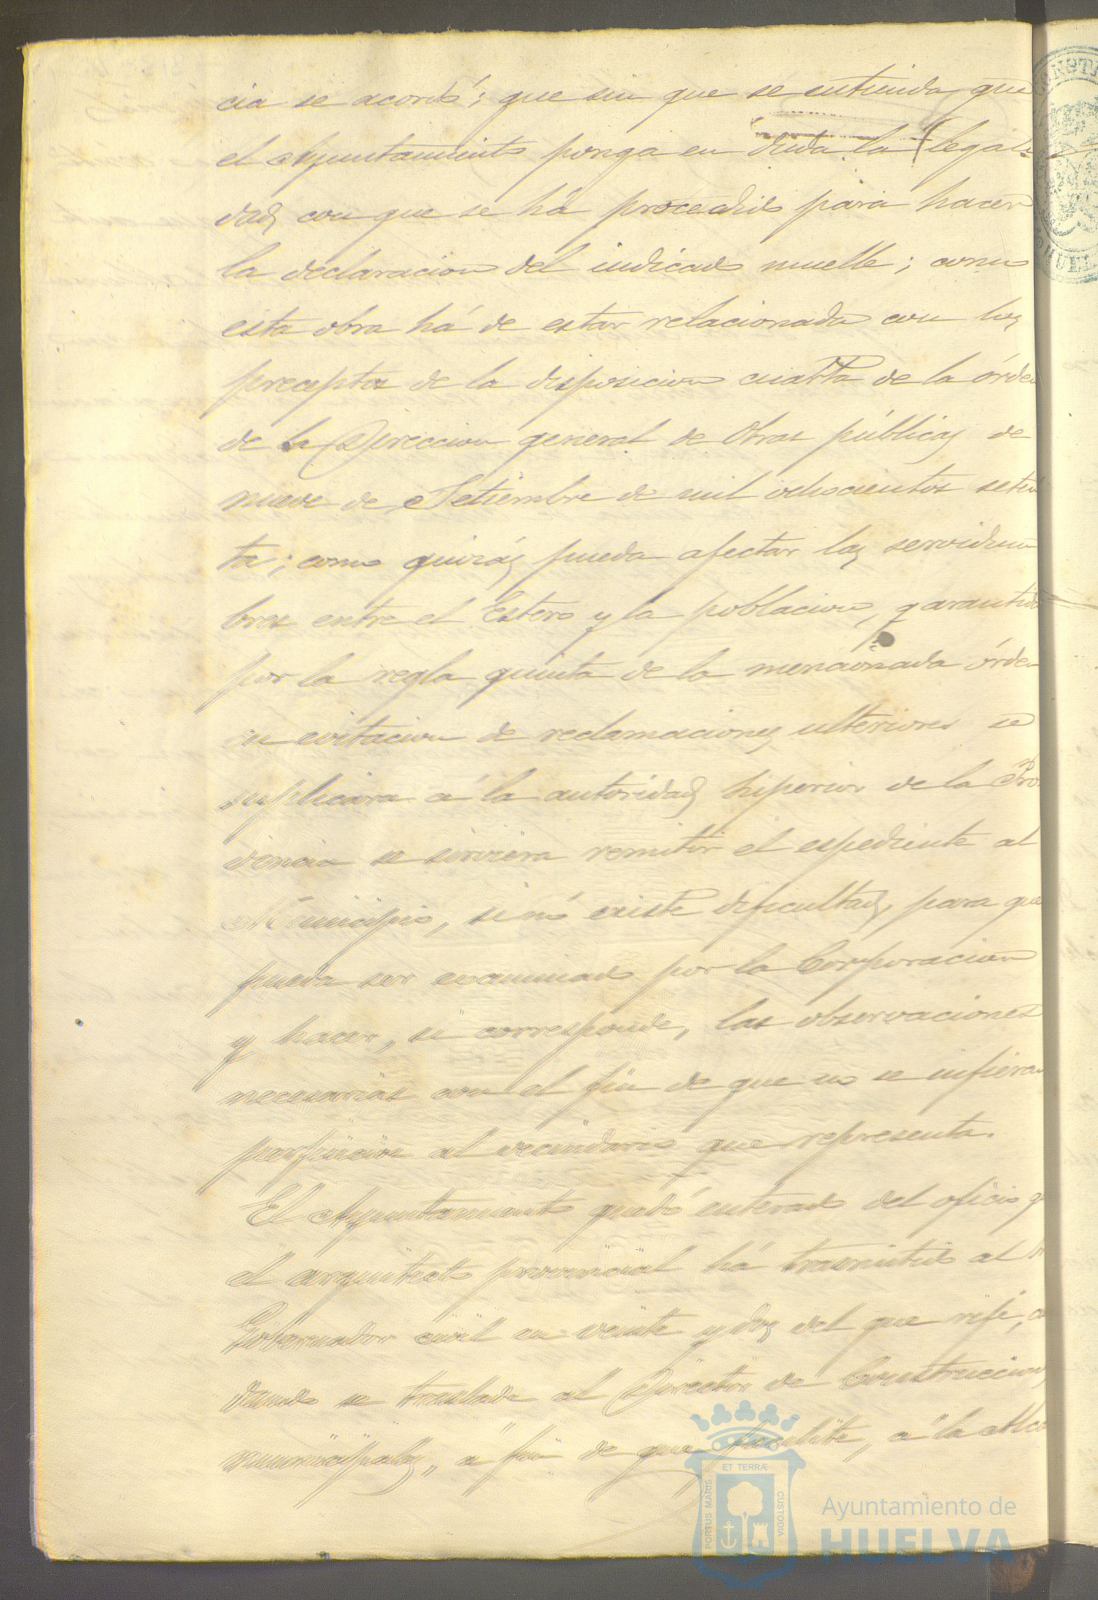 cia se acordó; que sin que se entienda que
el Ayuntamiento ponga en duda la legali
dad con que se há procedido para hacer
la declaracion del indicado muelle; como
esta obra há de estar relacionada con los
preceptos de la disposicion cuarta de la órden
de la Direccion general de Obras públicas de
nueve de Setiembre de mil ochocientos seten
ta; como quizás pueda afectar las servidum
bres entre el Estero y la poblacion, garantidas
por la regla quinta de la mencionada órden
en evitacion de reclamaciones ulteriores se
suplicára á la autoridad superior de la Pro
vincia se sirviera remitir el espediente al
Municipio, si nó existe dificultad, para que
pueda ser examinado por la Corporacion
y hacer, si corresponde, las observaciones
necesarias con el fin de que no se infieran
perjuicios al vecindario que representa.
El Ayuntamiento quedó enterado del oficio q
el arquitecto provincial há trasmitido al
Gobernador civil en veinte y dos del que rije,
dando se traslade al Director de Construcciones
municipales, á fin de que facilite, á la Alca
ET TERRÆ
PORTUS MARIS
CUSTODIA
Ayuntamiento de
HUELVA